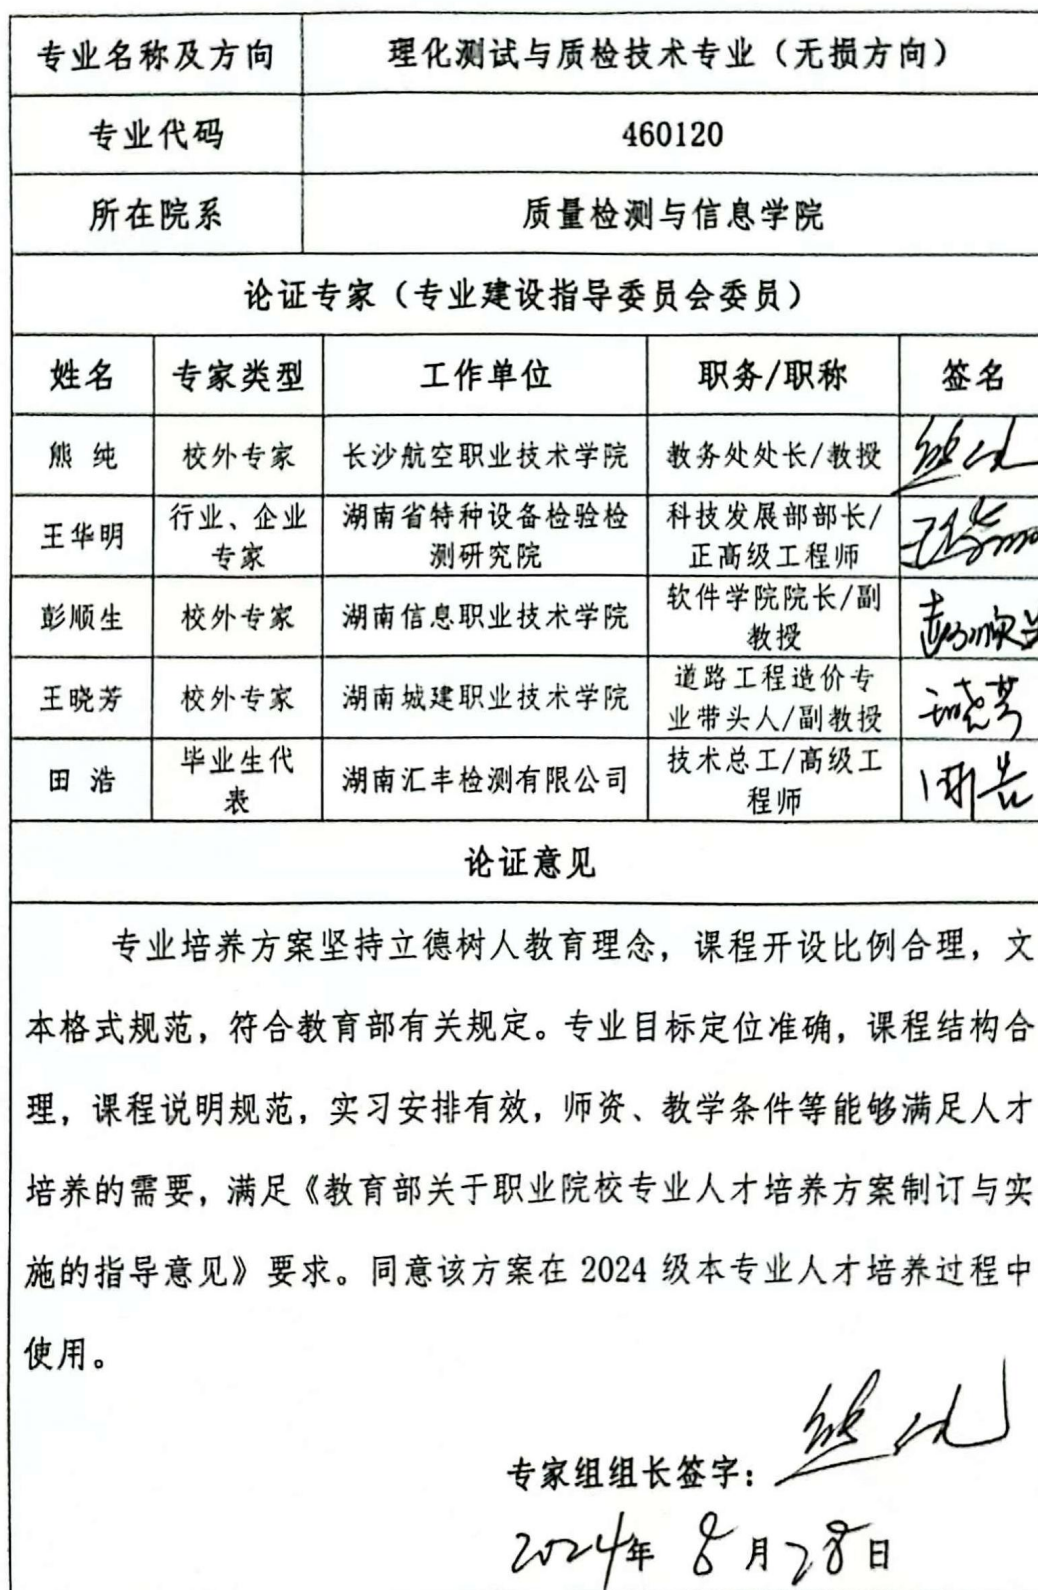 专业名称及方向 理化测试与质检技术专业（无损方向）
专业代码 460120
所在院系 质量检测与信息学院
论证专家（专业建设指导委员会委员）
姓名 专家类型 工作单位 职务/职称 签名
熊 纯 校外专家 长沙航空职业技术学院 教务处处长/教授 熊纯
王华明 行业、企业专家 湖南省特种设备检验检测研究院 科技发展部部长/正高级工程师 王华明
彭顺生 校外专家 湖南信息职业技术学院 软件学院院长/副教授 彭顺生
王晓芳 校外专家 湖南城建职业技术学院 道路工程造价专业带头人/副教授 王晓芳
田 浩 毕业生代表 湖南汇丰检测有限公司 技术总工/高级工程师 田浩
论证意见
专业培养方案坚持立德树人教育理念，课程开设比例合理，文
本格式规范，符合教育部有关规定。专业目标定位准确，课程结构合
理，课程说明规范，实习安排有效，师资、教学条件等能够满足人才
培养的需要，满足《教育部关于职业院校专业人才培养方案制订与实
施的指导意见》要求。同意该方案在 2024 级本专业人才培养过程中
使用。
专家组组长签字：熊纯
2024年 8月28日